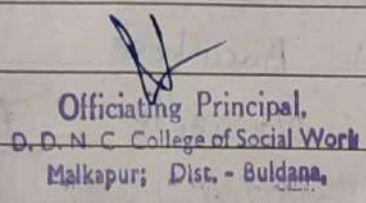 Officiating Principal,
D. D. N. C. College of Social Work
Malkapur; Dist. - Buldana,